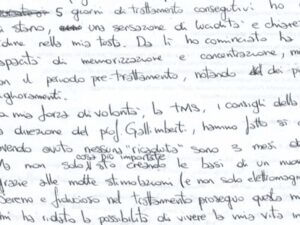 5 giorni di trattamento consecutivi ho
una sensazione di lucidità e chiare
nella mia testa. Da lì ho cominciato ha
capacità di memorizzazione e concentrazione, m
il periodo pre-trattamento, notando dei p
glioramenti.
mia forza di volontà, la TMS, i consigli della
direzione del prof Gallimberti, hanno fatto sì c
avendo avuto nessuna "ricaduta" sono 3 mesi d
cosa più importante
Ma non solo si sto creando le basi di un nuo
grazie alle molte stimolazioni (e non solo elettromagn
Sereno e fiducioso nel trattamento proseguo questo m
mi ha ridato la possibilità di vivere la mia vita m